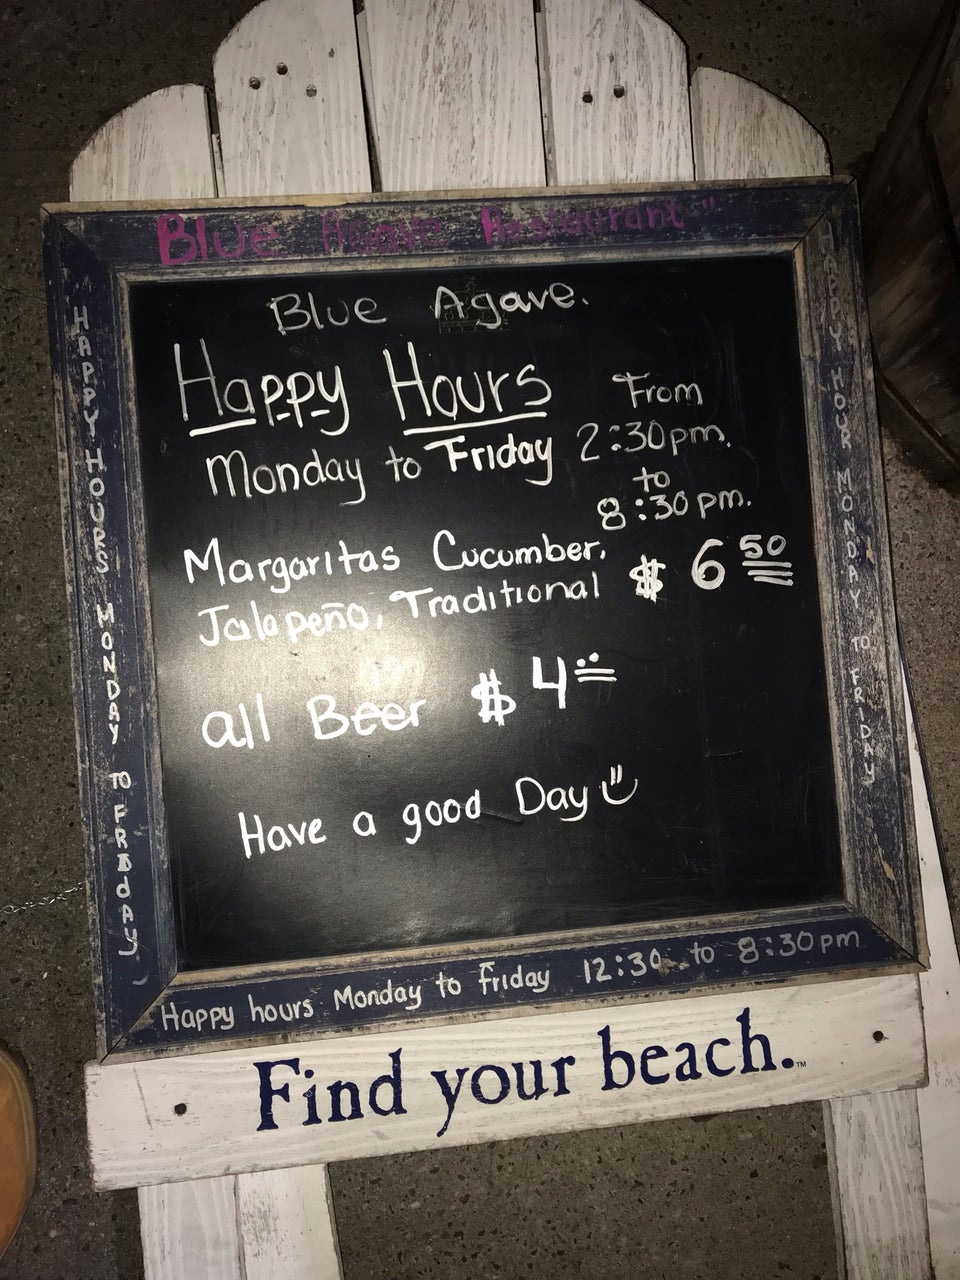 Blue Agave Restaurant"
Blue Agave.
Happy Hours
From
Monday to Friday 2:30pm.
to
8:30 pm.
Margaritas Cucumber,
Jalapeño, Traditional $ 6 50
all Beer $ 4
Have a good Day
HAPPY HOURS MONDAY TO FRIdAY
HAPPY HOUR MONDAY TO FRIDAY
Happy hours Monday to Friday 12:30 to 8:30pm
Find your beach.™